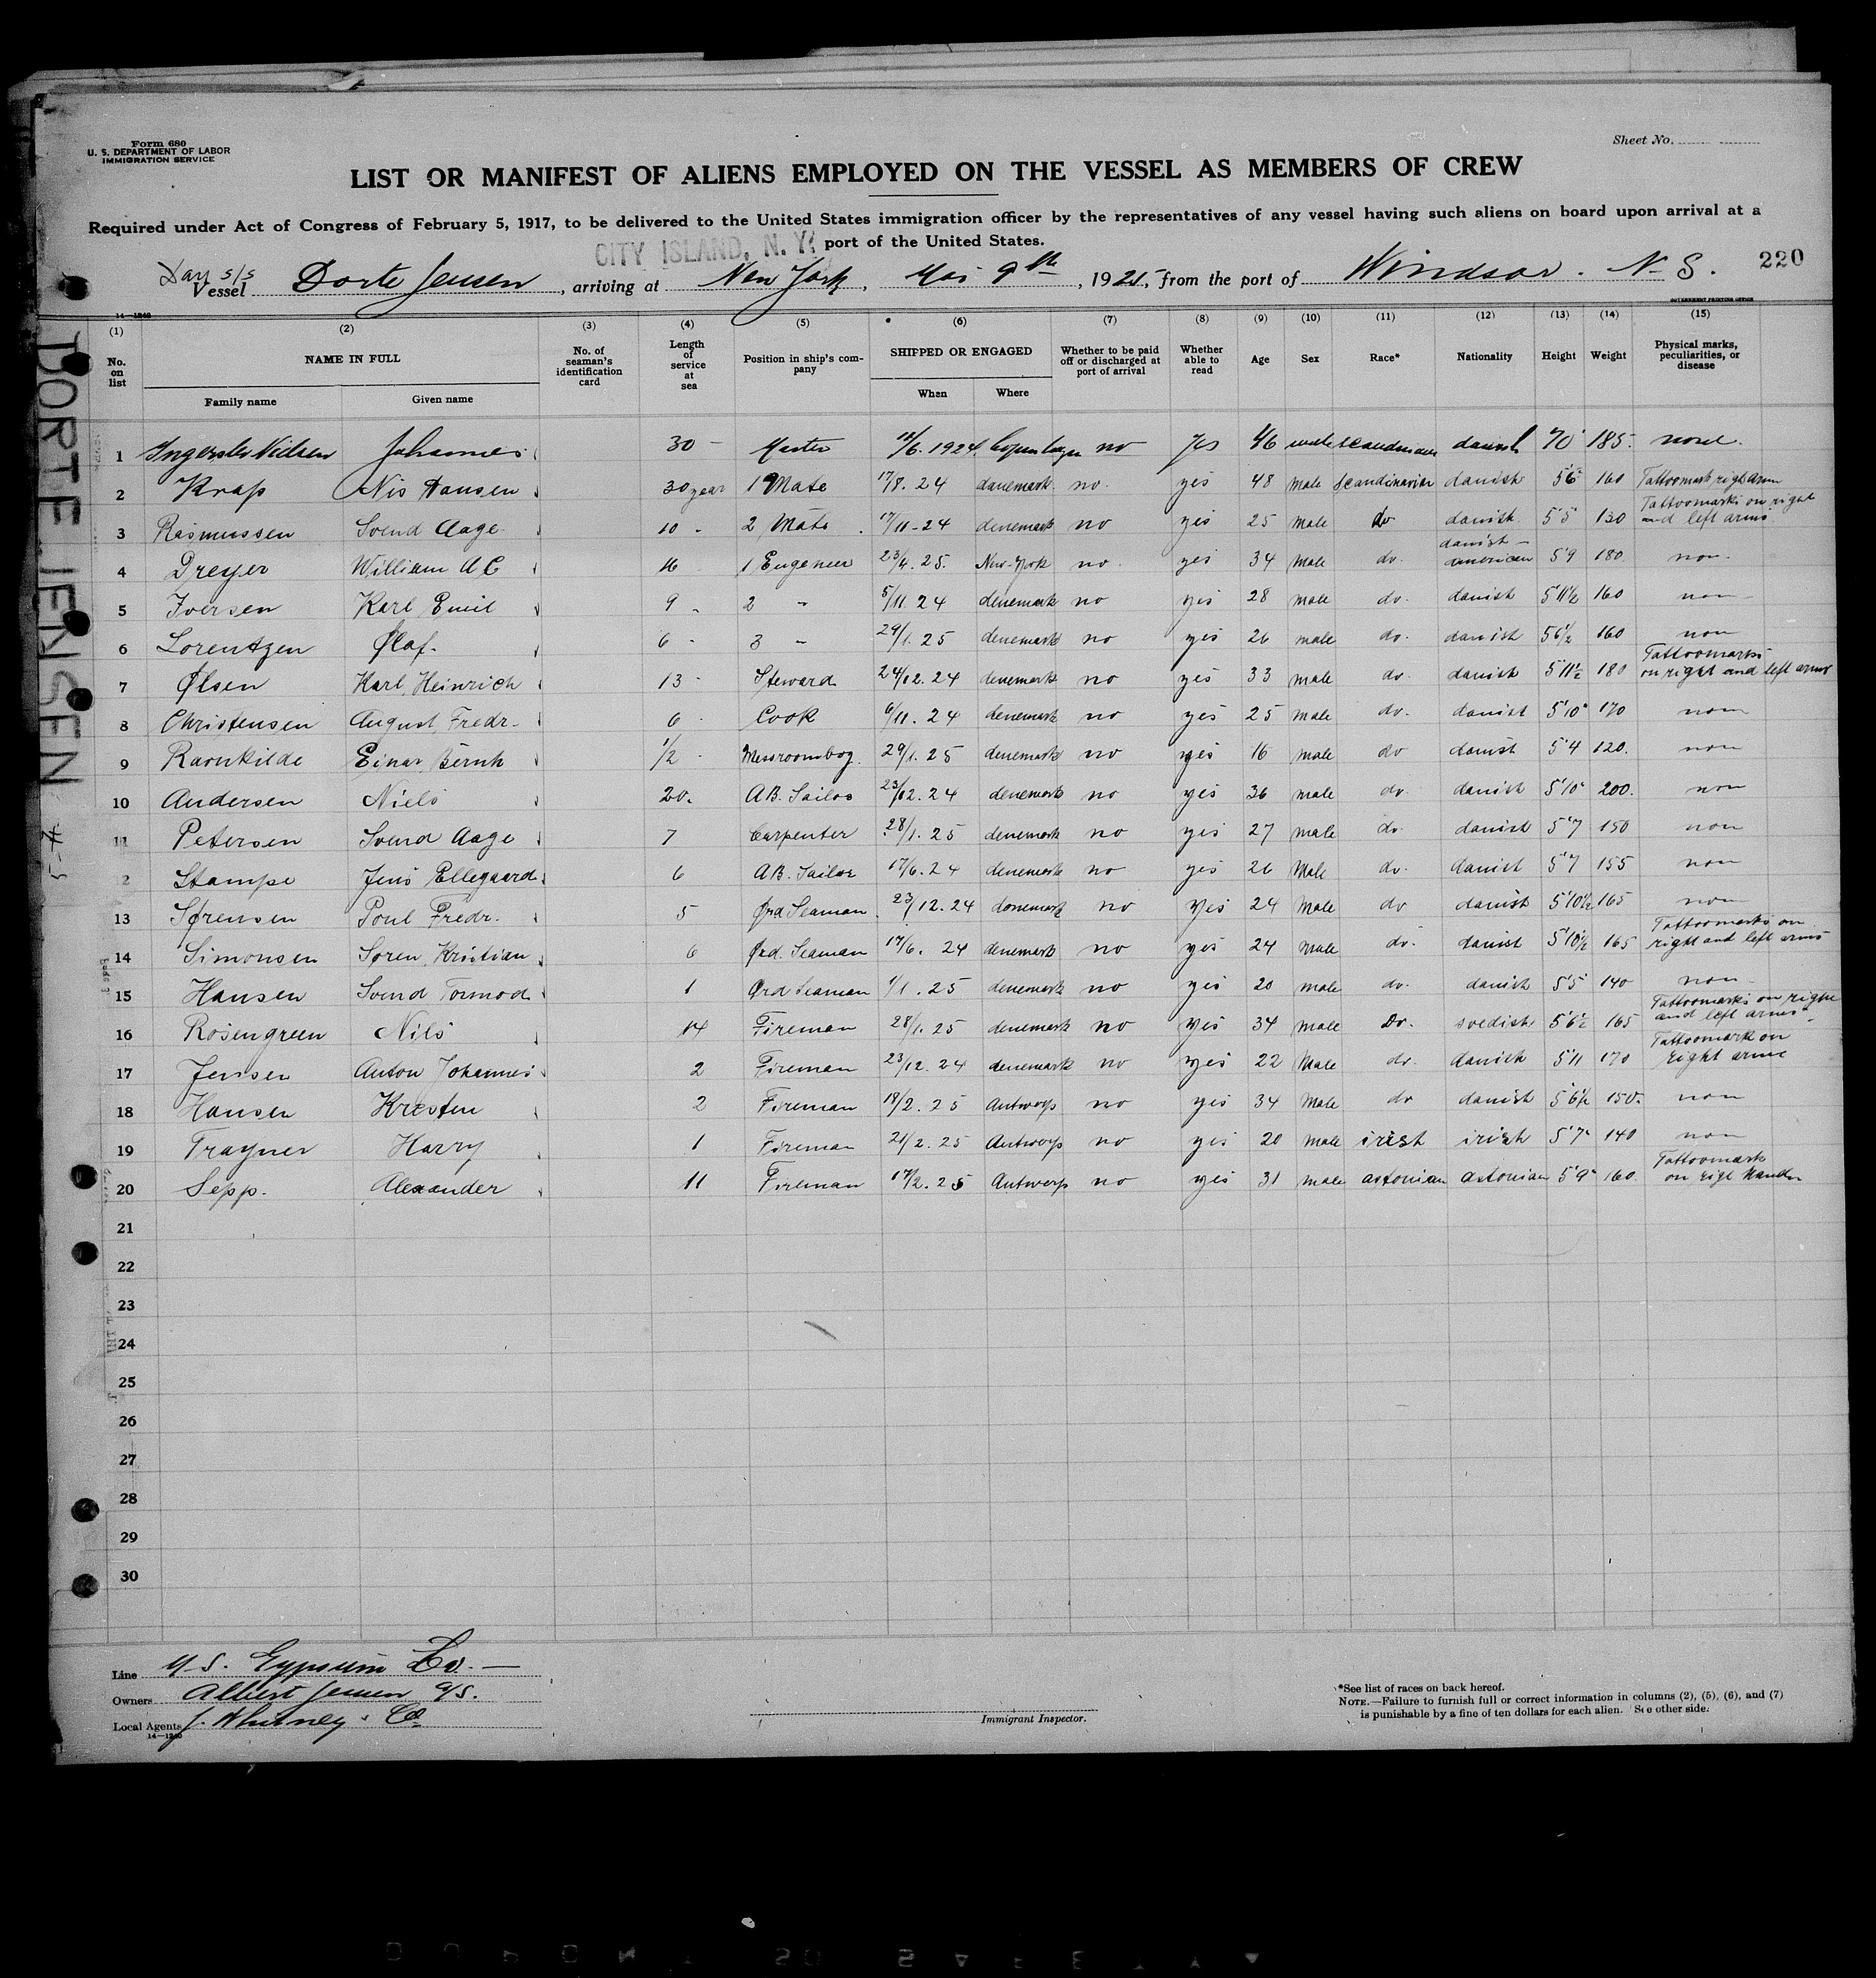 Form 680
U. S. DEPARTMENT OF LABOR
IMMIGRATION SERVICE
Sheet No.
LIST OR MANIFEST OF ALIENS EMPLOYED ON THE VESSEL AS MEMBERS OF CREW
Required under Act of Congress of February 5, 1917, to be delivered to the United States immigration officer by the representatives of any vessel having such aliens on board upon arrival at a
port of the United States.
CITY ISLAND, N. Y.
s/s Vessel Dorte Jensen, arriving at New York, Mai 9th, 1925, from the port of Windsor. N-S. 220
14—1240
GOVERNMENT PRINTING OFFICE
DORTE JENSEN
(1) (2) (3) (4) (5) (6) (7) (8) (9) (10) (11) (12) (13) (14) (15)
No. on list NAME IN FULL No. of seaman's identification card Length of service at sea Position in ship's company SHIPPED OR ENGAGED Whether to be paid off or discharged at port of arrival Whether able to read Age Sex Race* Nationality Height Weight Physical marks, peculiarities, or disease
Family name Given name When Where
1 Nielsen Johannes 30 - Master /6. 1924 Copenhagen no Yes 46 male danish 185 none.
2 Krap Nis Hansen 30 year 1 Mate 17/8. 24 danemark no. yes 48 male scandinavian danish 5'6 160 Tattoomark righ arm
3 Rasmussen Svend Aage 10 - 2 Mate 17/11-24 denemark no yes 25 male do danish 5'5 130 Tattoomarks on right and left arms
4 Dreyer William A C 16 1 Engeneer 23/4. 25. New-York no. yes 34 male do. danish - american 5'9 180 non.
5 Iversen Karl Emil 9 - 2 - 5/11. 24 denemark no yes 28 male do. danish 5'11½ 160 non
6 Lorentzen Ølaf. 6 - 3 - 29/1. 25 denemark no yes 26 male do. danish 5'6½ 160 non
7 Ølsen Karl Heinrich 13 - Steward 24/12. 24 denemark no yes 33 male do. danish 5'11½ 180 Tattoomarks on right and left arms
8 Christensen August Fredr. 6 - Cook 6/11. 24 denemark no yes 25 male do. danish 5'10" 170 non
9 Ravnkilde Einar Bernh ½ - Messroomboy 29/1. 25 denemark no yes 16 male do danish 5'4 120. non
10 Andersen Niels 20. AB. Sailor 23/12. 24 denemark no yes 36 male do. danish 5'10" 200. non
11 Petersen Svend Aage 7 Carpenter 28/1. 25 denemark no yes 27 male do. danish 5'7 150 non
2 Stampe Jens Ellegaard 6 AB. Sailor 17/6. 24 denemark no yes 26 Male do. danish 5'7 155 non
13 Sørensen Poul Fredr. 5 Ørd Seaman 23/12. 24 denemark no yes 24 Male do danish 5'10½ 165 non
14 Simonsen Søren Kristian 6 Ørd. Seaman 17/6. 24 denemark no yes 24 male do. danish 5'10½ 165 Tattoomarks on right and left arms
15 Hansen Svend Tormod 1 Ørd Seaman 1/1. 25 denemark no yes 20 male do. danish 5'5 140 non
16 Rosengreen Nils 14 Fireman 28/1. 25 denemark no yes 34 male Do. svedish 5'6½ 165 Tattoomarks on right and left arms
17 Jensen Anton Johannes 2 Fireman 23/12. 24 denemark no yes 22 Male do. danish 5'11 170 Tattoomark on right arme
18 Hansen Kresten 2 Fireman 18/2. 25 Antwerp no yes 34 Male do danish 5'6½ 150. non
19 Trayner Harry 1 Fireman 21/2. 25 Antwerp no yes 20 male irish irish 5'7" 140 non
20 Sepp. Alexander 11 Fireman 17/2. 25 Antwerp no yes 31 male astonian astonian 5'9" 160. Tattoomark on rigt
21
22
23
24
25
26
27
28
29
30
Line U-S. Gypsum Co. —
Owners Albert Jensen A/S.
Local Agents J. Whitney Co
14—1240
Immigrant Inspector.
*See list of races on back hereof.
NOTE.—Failure to furnish full or correct information in columns (2), (5), (6), and (7)
is punishable by a fine of ten dollars for each alien. See other side.
DUPONT SAFETY